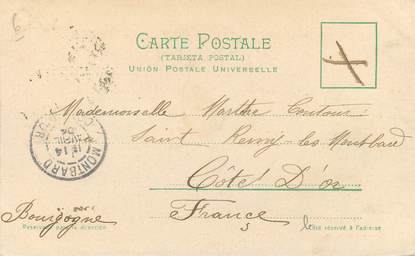 6
CARTE POSTALE
(TARJETA POSTAL)
UNIÓN POSTALE UNIVERSELLE
Mademoiselle Marthe
Saint Remy-les-Montbard
Côte D'or
Bourgogne
France
Côté réservé à l'adresse
MONTBARD
14
AVRIL
04